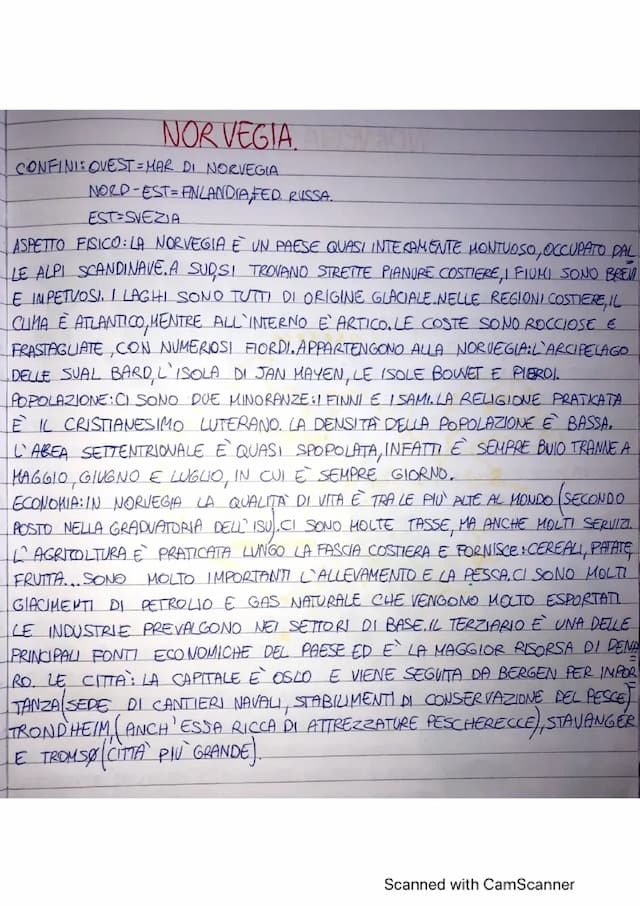 NORVEGIA.
CONFINI: OVEST=MAR DI NORVEGIA
NORD-EST=FINLANDIA,FED RUSSA.
EST=SVEZIA
ASPETTO FISICO: LA NORVEGIA È UN PAESE QUASI INTERAMENTE MONTUOSO, OCCUPATO DAL
LE ALPI SCANDINAVE. A SUD,SI TROVANO STRETTE PIANURE COSTIERE, I FIUMI SONO BREVI
E IMPETUOSI. I LAGHI SONO TUTTI DI ORIGINE GLACIALE. NELLE REGIONI COSTIERE, IL
CLIMA È ATLANTICO, MENTRE ALL'INTERNO È ARTICO. LE COSTE SONO ROCCIOSE E
FRASTAGLIATE, CON NUMEROSI FIORDI. APPARTENGONO ALLA NORVEGIA: L'ARCIPELAGO
DELLE SVAL BARD, L'ISOLA DI JAN MAYEN, LE ISOLE BOUVET E PIERDI.
POPOLAZIONE: CI SONO DUE MINORANZE: I FINNI E I SAMI. LA RELIGIONE PRATICATA
È IL CRISTIANESIMO LUTERANO. LA DENSITÀ DELLA POPOLAZIONE È BASSA.
L'AREA SETTENTRIONALE È QUASI SPOPOLATA, INFATTI È SEMPRE BUIO TRANNE A
MAGGIO, GIUGNO E LUGLIO, IN CUI È SEMPRE GIORNO.
ECONOMIA: IN NORVEGIA LA QUALITÀ DI VITA È TRA LE PIÙ ALTE AL MONDO (SECONDO
POSTO NELLA GRADUATORIA DELL'ISU). CI SONO MOLTE TASSE, MA ANCHE MOLTI SERVIZI.
L'AGRICOLTURA È PRATICATA LUNGO LA FASCIA COSTIERA E FORNISCE: CEREALI, PATATE,
FRUTTA... SONO MOLTO IMPORTANTI L'ALLEVAMENTO E LA PESCA. CI SONO MOLTI
GIACIMENTI DI PETROLIO E GAS NATURALE CHE VENGONO MOLTO ESPORTATI.
LE INDUSTRIE PREVALGONO NEI SETTORI DI BASE. IL TERZIARIO È UNA DELLE
PRINCIPALI FONTI ECONOMICHE DEL PAESE ED È LA MAGGIOR RISORSA DI DENA
RO. LE CITTÀ: LA CAPITALE È OSLO E VIENE SEGUITA DA BERGEN PER IMPOR
TANZA (SEDE DI CANTIERI NAVALI, STABILIMENTI DI CONSERVAZIONE DEL PESCE)
TRONDHEIM, (ANCH'ESSA RICCA DI ATTREZZATURE PESCHERECCE), STAVANGER
E TROMSØ (CITTÀ PIÙ GRANDE).
Scanned with CamScanner